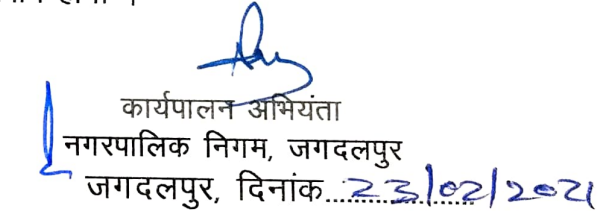 कार्यपालन अभियंता
नगरपालिक निगम, जगदलपुर
जगदलपुर, दिनांक...23/02/2021